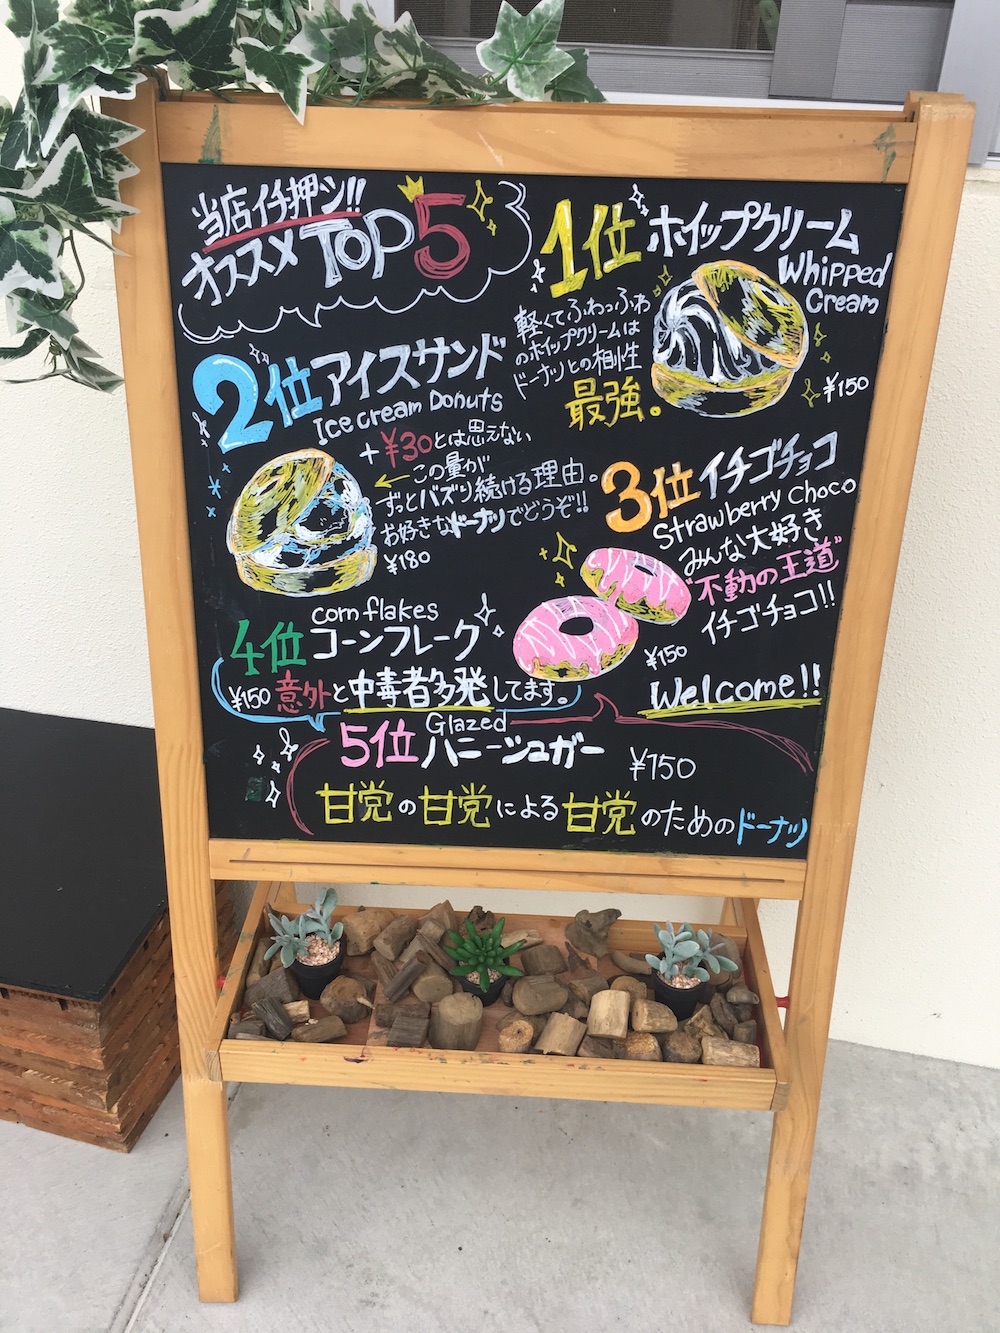 当店イチ押シ!!
オススメ TOP 5
1位 ホイップクリーム
Whipped
Cream
軽くてふわっふわ
のホイップクリームは
ドーナツとの相性
最強。
¥150
2位 アイスサンド
Ice cream Donuts
+¥30とは思えない
この量が
ずっとバズり続ける理由。
お好きなドーナツでどうぞ!!
¥180
3位 イチゴチョコ
Strawberry Choco
みんな大好き
"不動の王道"
イチゴチョコ!!
¥150
corn flakes
4位 コーンフレーク
¥150 意外と中毒者多発してます。
Welcome!!
Glazed
5位 ハニーシュガー ¥150
甘党の甘党による甘党のためのドーナツ